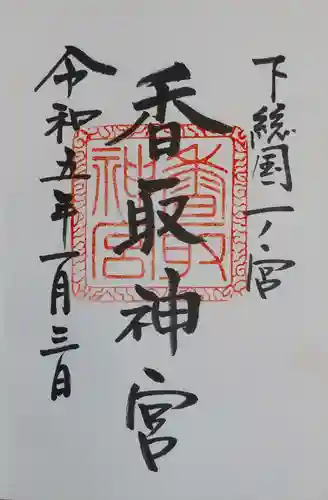 下総国一ノ宮
香取神宮
香取神宮
令和五年一月三日